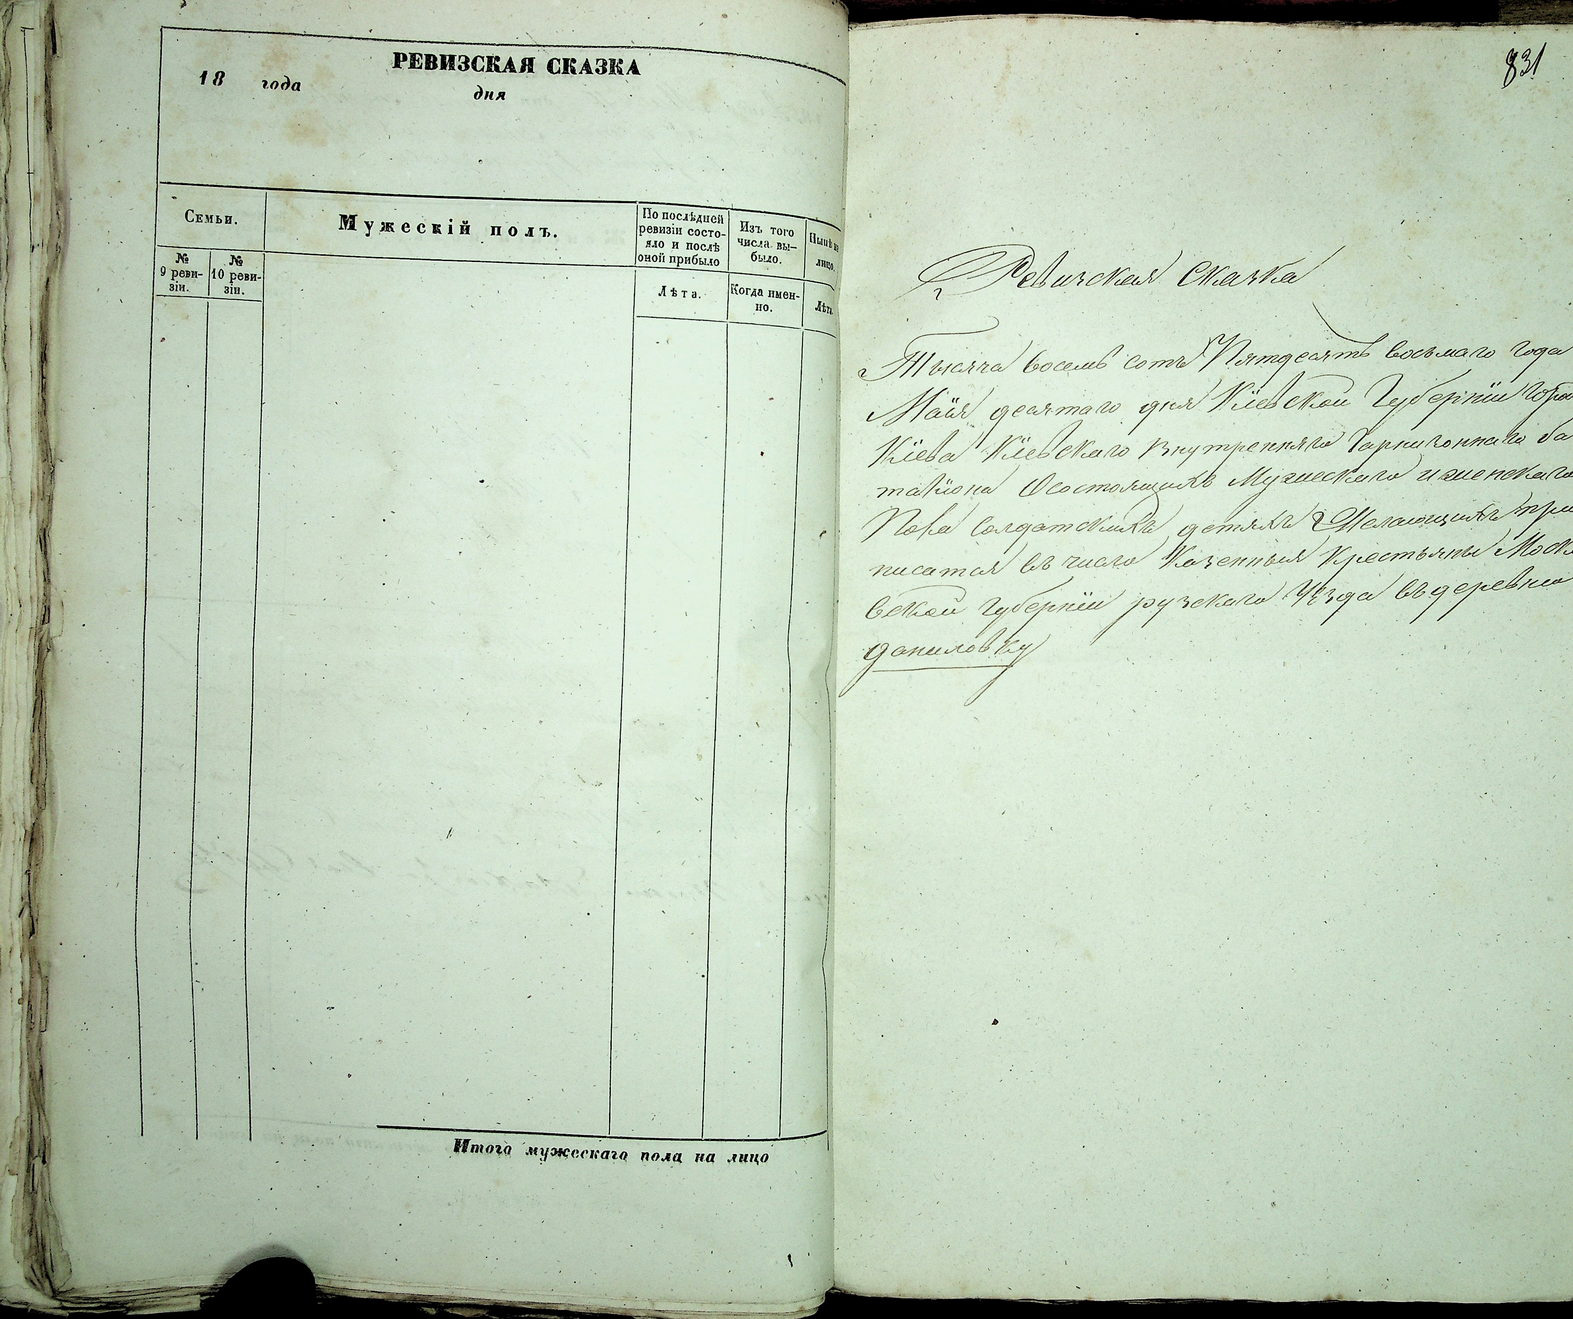 РЕВИЗСКАЯ СКАЗКА
18 года дня
Семьи.
№ 9 реви-
зіи.
№ 10 реви-
зіи.
Мужескій полъ.
По послѣдней
ревизіи состо-
яло и послѣ
оной прибыло
Лѣта.
Изъ того
числа вы-
было.
Когда имен-
но.
Нынѣ на
лицо.
Лѣта.
Итого мужескаго пола на лицо
831
Ревизская Сказка
Тысяча восемь сотъ Пятдесятъ восьмаго года
Маія десятаго дня Кіевской Губерніи горо
Кіева Кіевскаго Внутренняго Гарнизоннаго ба
таліона Осостоящихъ Мужескаго и женскаго
Пола Солдатскихъ детяхъ Желающихъ при
писатся въ число Казенныя Крестьяны Моск
вской губерніи рузскаго Уѣзда въ деревню
даниловку